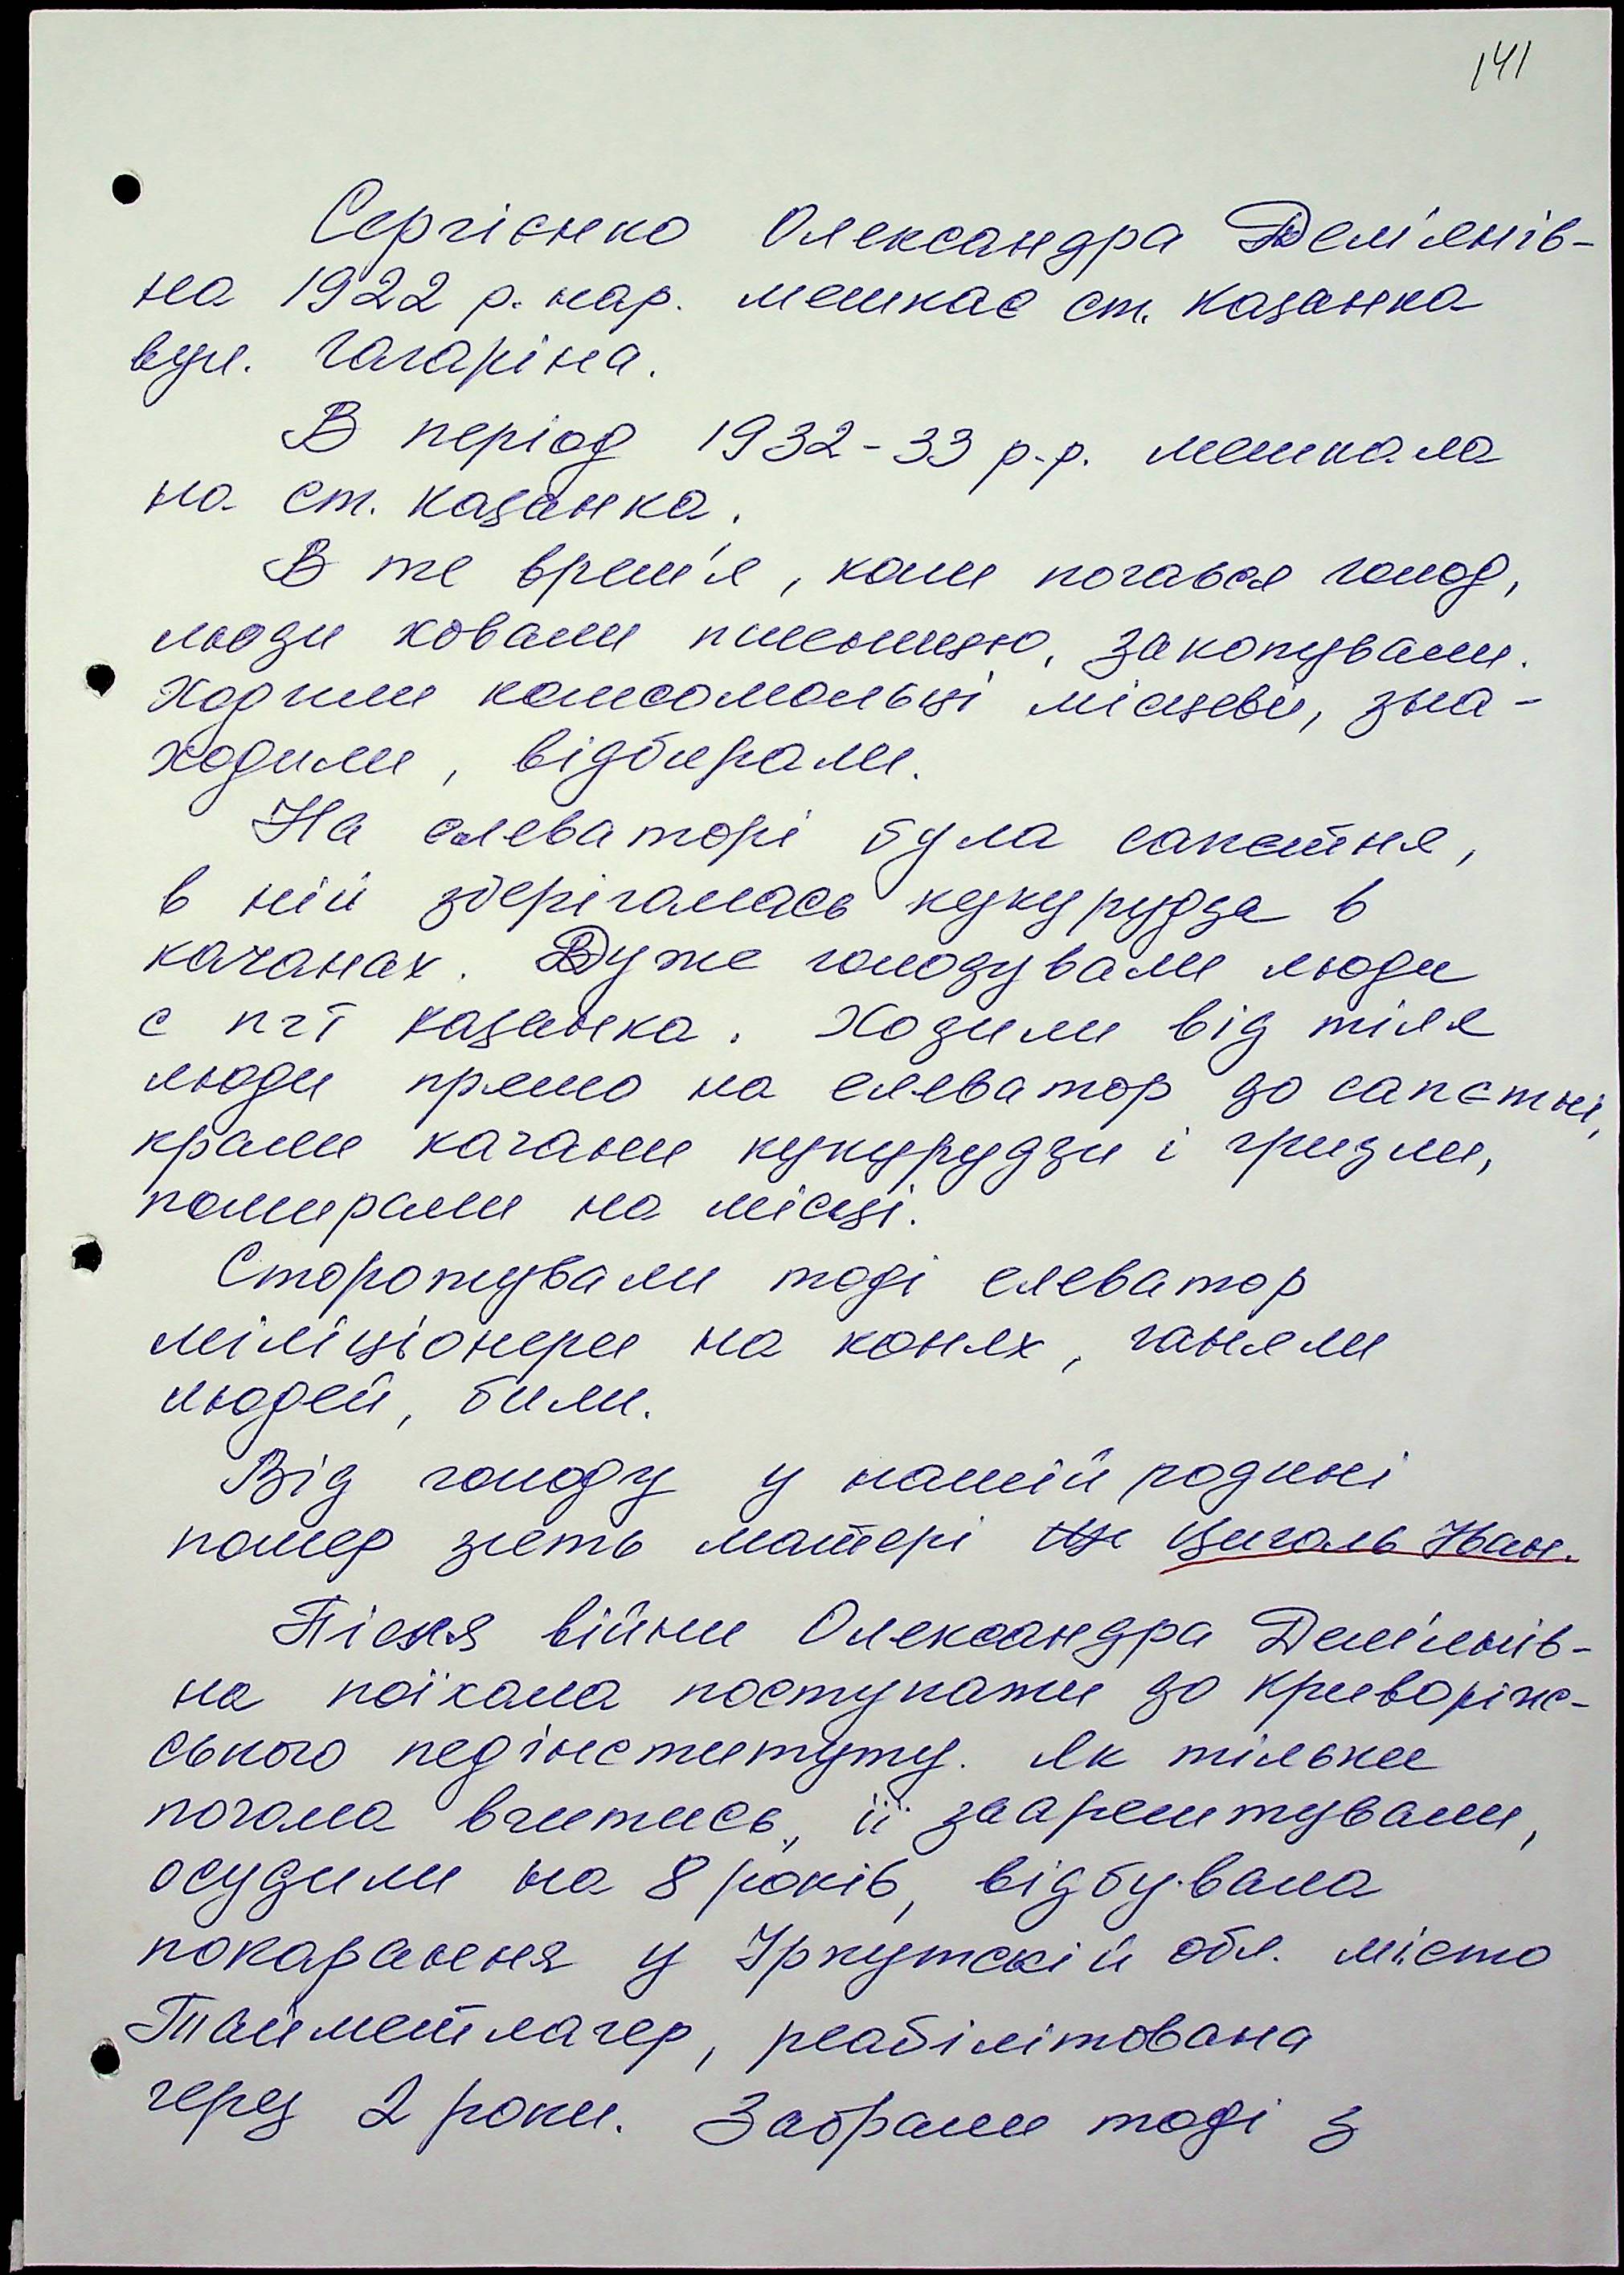 141
Сергієнко Олександра Дем'янів-
на 1922 р. нар. мешкає ст. Казанка
вул. Гагаріна.
В період 1932-33 р.р. мешкала
на ст. Казанка.
В те врем'я, коли почався голод,
люди ховали пшеницю, закопували.
Ходили комсомольці місцеві, зна-
ходили, відбирали.
На елеваторі була сапетня,
в ній зберігалась кукурудза в
качанах. Дуже голодували люди
с пгт Казанка. Ходили від тіля
люди прямо на елеватор до сапєтні,
крали качани кукурудзи і гризли,
помирали на місці.
Сторожували тоді елеватор
міліціонери на конях, ганяли
людей, били.
Від голоду у нашій родині
помер зять матері Циголь Іван.
Після війни Олександра Дем'янів-
на поїхала поступати до Криворіжс-
ського педінституту. Як тільки
почала вчитись, її заарештували,
осудили на 8 років, відбувала
покарання у Іркутскій обл. місто
Тайшетлагер, реабілітована
через 2 роки. Забрали тоді з